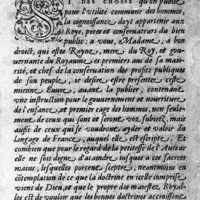 DES CHOSES qu'on publie
pour l'vtilité commune des hommes,
la cognoissance doyt appartenir aux
Roys, peres et conservateurs du bien
public: a vous, Madame, a bon
droict, qui estes Royne, mere du Roy, et gou-
vernante du Royaume es premiers ans de sa ma-
iesté, et chef de la conservation des profits publiques
de son peuple, se desdie estre presenté, ceste
mienne Euure, auant la publier, contenant
vne instruction pour le gouuernement et nourriture
de l'enfance, et premier eage des hommes, non seule-
ment de ceux qui sont et seront vos subiectz, mais
aussi de ceux qui se voudront ayder et valoir du
Langage de France, auquel elle est escripte. Et
combien que pour le regard de la petitesse de l'Auteur
elle ne soit digne d'atteindre iusques a ces sacrées
mains, lesquelles portent sceptre, neantmoins en
contemplation de ce que la doctrine en icelle comprise
vient de Dieu, et que le propre des maiestez Royal-
les est de vouloir que les bonnes doctrines accroissent